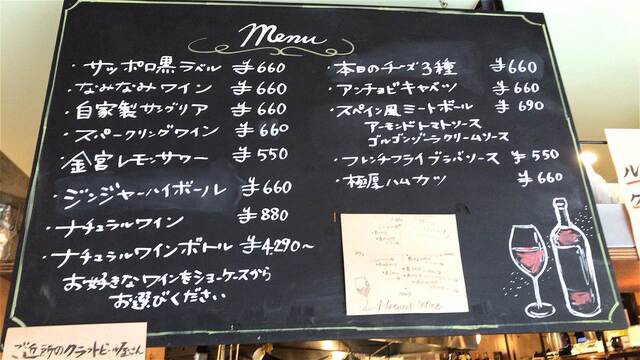 Menu
・サッポロ黒ラベル ¥660
・なみなみワイン ¥660
・自家製サングリア ¥660
・スパークリングワイン ¥660
・金宮レモンサワー ¥550
・ジンジャーハイボール ¥660
・ナチュラルワイン ¥880
・ナチュラルワインボトル ¥4,290〜
お好きなワインをショーケースから
お選びください
・本日のチーズ3種 ¥660
・アンチョビキャベツ ¥660
・スペイン風ミートボール ¥690
アーモンドトマトソース
ゴルゴンゾーラクリームソース
・フレンチフライブラバソース ¥550
・極厚ハムカツ ¥660
Natural Wine
ご近所のクラフトビール屋さん